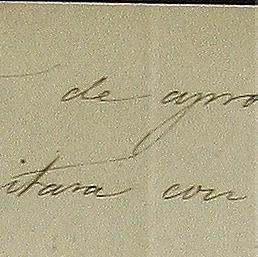 de apro
itara con